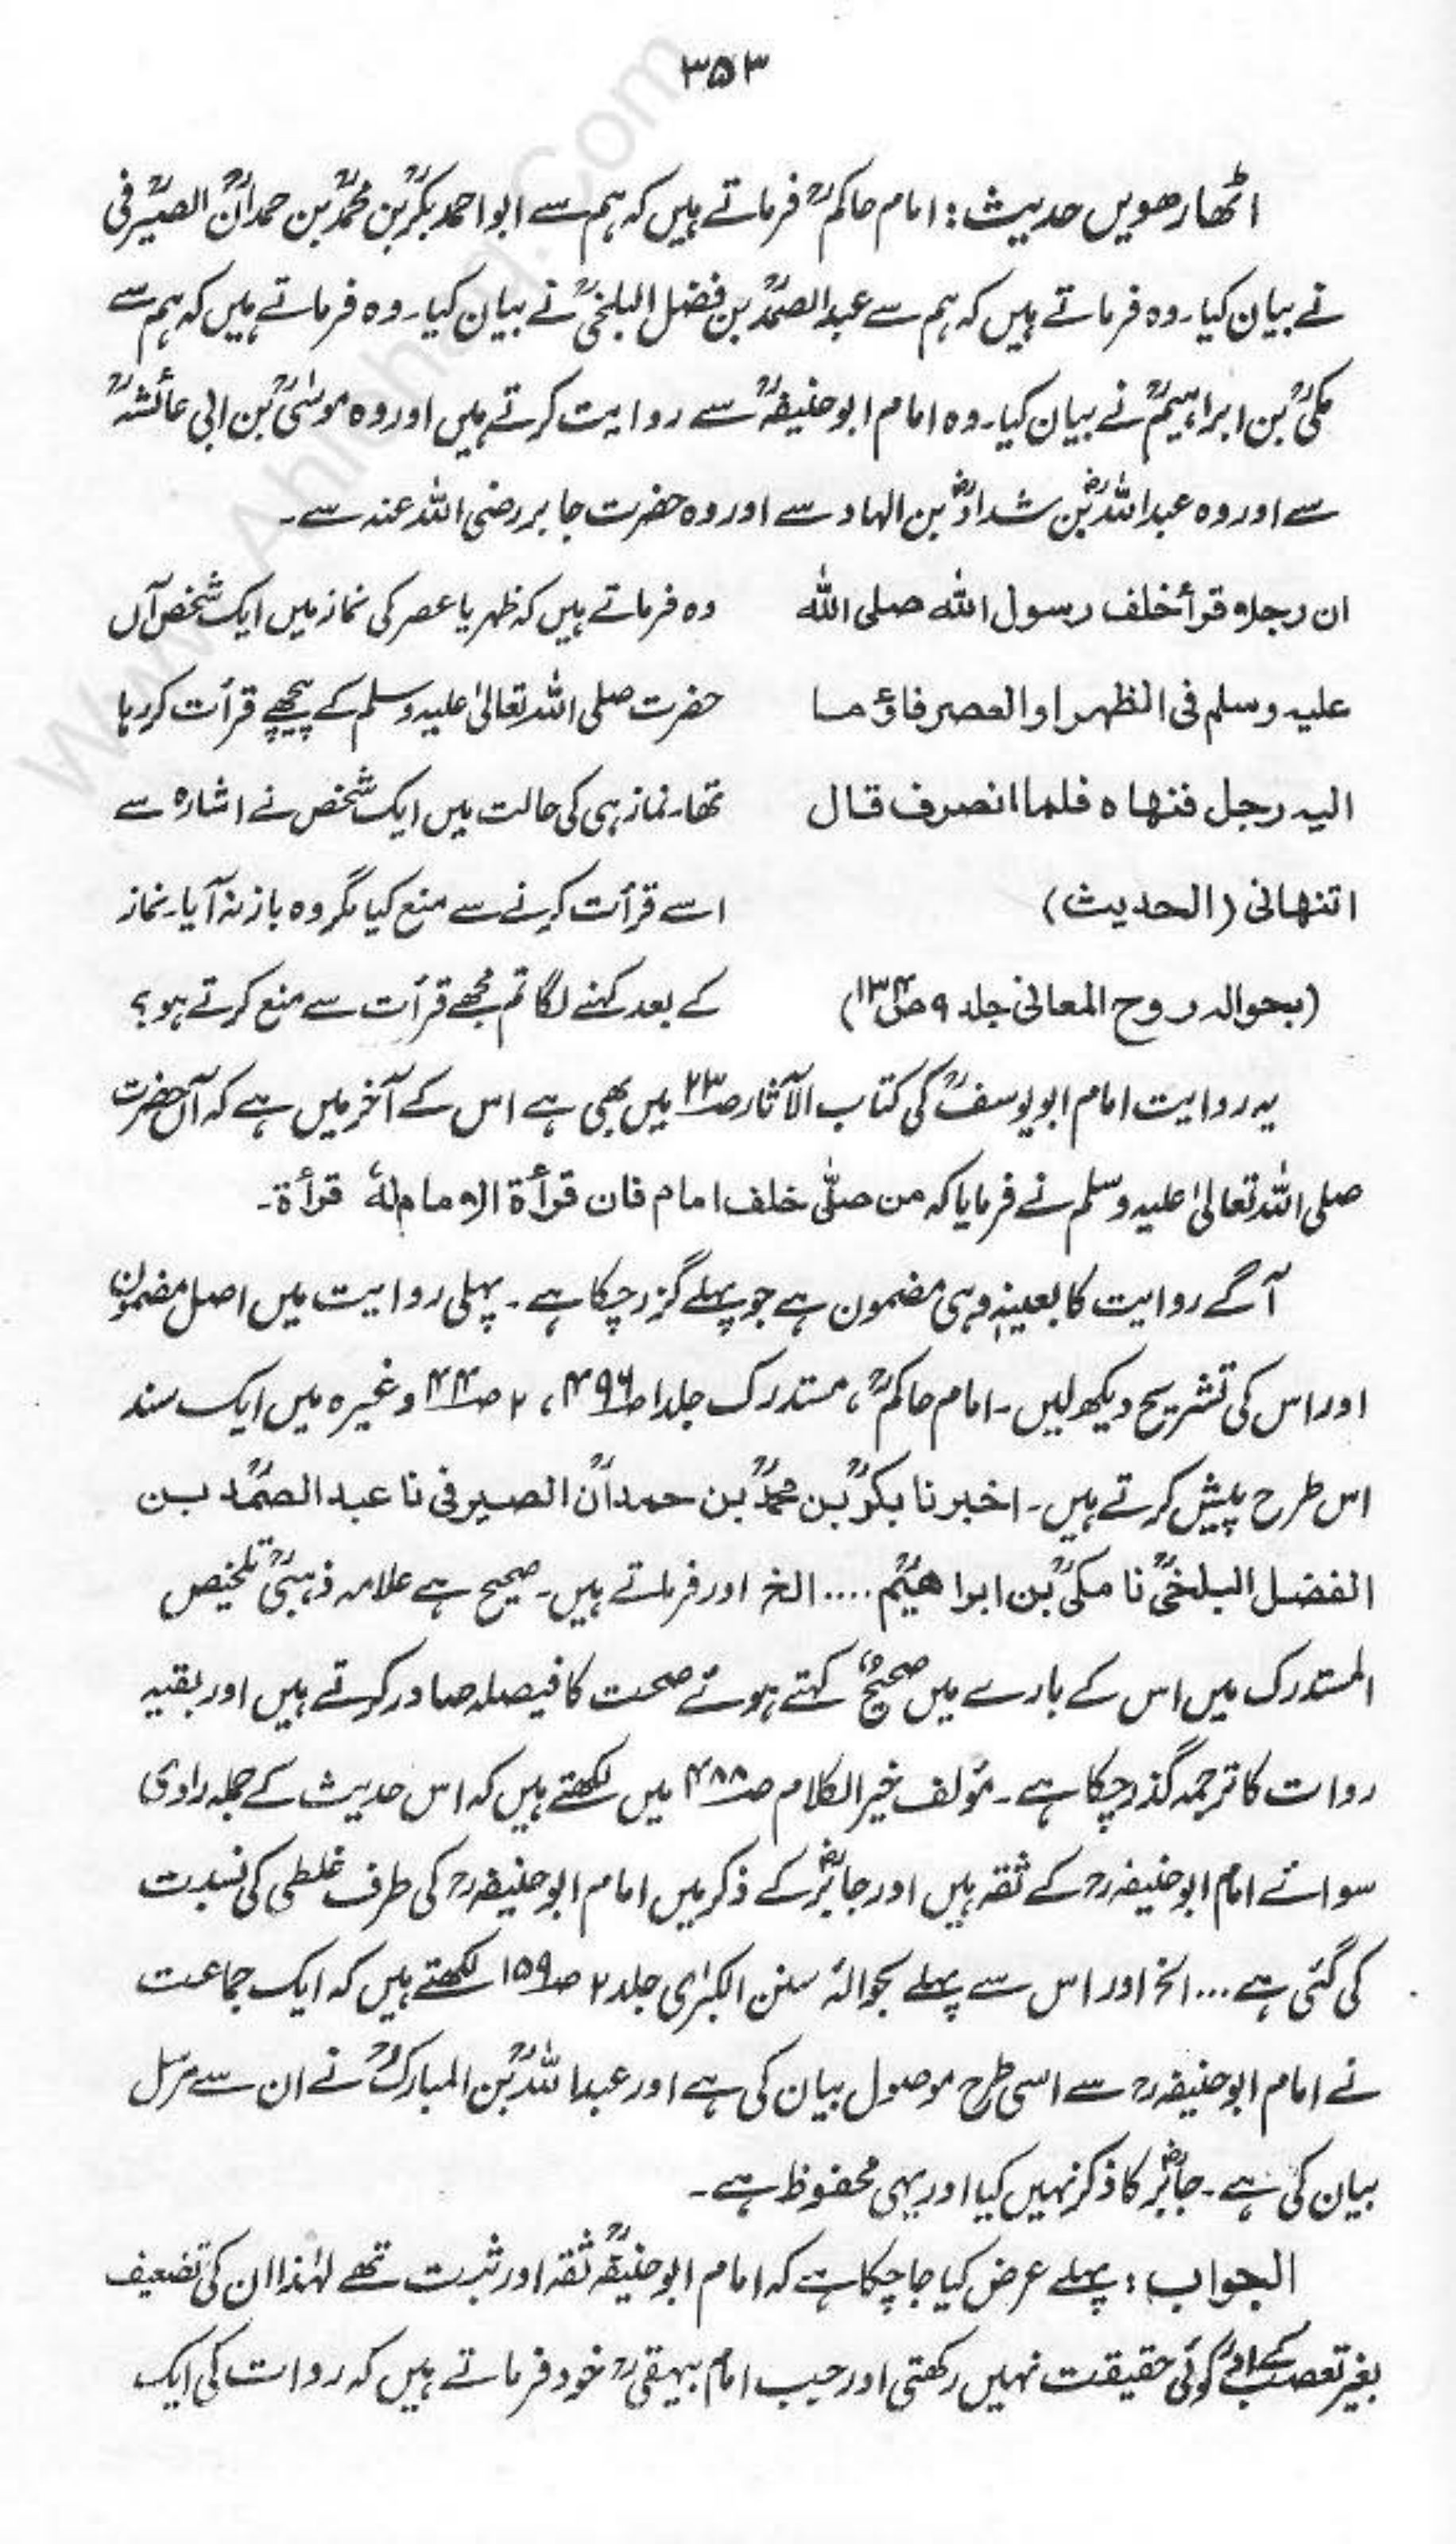 ۳۵۳
اٹھارھویں حدیث: امام حاکمؒ فرماتے ہیں کہ ہم سے ابو احمد بکرؒ بن محمدؒ بن حمدانؒ الصیرفیؒ
نے بیان کیا۔ وہ فرماتے ہیں کہ ہم سے عبدالصمدؒ بن فضل البلخیؒ نے بیان کیا۔ وہ فرماتے ہیں کہ ہم سے
مکیؒ بن ابراہیمؒ نے بیان کیا۔ وہ امام ابو حنیفہؒ سے روایت کرتے ہیں اور وہ موسٰیؒ بن ابی عائشہؒ
سے اور وہ عبداللہؓ بن شدادؓ بن الہاد سے اور وہ حضرت جابر رضی اللہ عنہ سے۔
ان رجلاً قرأ خلف رسول اللہ صلی اللہ وہ فرماتے ہیں کہ ظہر یا عصر کی نماز میں ایک شخص آں
علیہ وسلم فی الظہر او العصر فاؤما حضرت صلی اللہ تعالیٰ علیہ وسلم کے پیچھے قرأت کر رہا
الیہ رجل فنہاہ فلما انصرف قال تھا۔ نماز ہی کی حالت میں ایک شخص نے اشارہ سے
اتنہانی (الحدیث) اسے قرأت کرنے سے منع کیا مگر وہ باز نہ آیا۔ نماز
(بحوالہ روح المعانی جلد ۹ ص۱۳۴) کے بعد کہنے لگا تم مجھے قرأت سے منع کرتے ہو؟
یہ روایت امام ابو یوسفؒ کی کتاب الآثار ص۲۳ میں بھی ہے اس کے آخر میں ہے کہ آں حضرت
صلی اللہ تعالیٰ علیہ وسلم نے فرمایا کہ من صلّی خلف امام فان قرأۃ الامام لہٗ قرأۃ۔
آگے روایت کا بعینہٖ وہی مضمون ہے جو پہلے گزر چکا ہے۔ پہلی روایت میں اصل مضمون
اور اس کی تشریح دیکھ لیں۔ امام حاکمؒ، مستدرک جلد۱ ص۴۹۶، ۲ ص۴۴ وغیرہ میں ایک سند
اس طرح پیش کرتے ہیں۔ اخبرنا بکرؒ بن محمدؒ بن حمدانؒ الصیرفی نا عبد الصمدؒ بن
الفضل البلخیؒ نا مکیؒ بن ابراھیمؒ .... الخ اور فرماتے ہیں۔ صحیح ہے علامہ ذہبیؒ تلخیص
المستدرک میں اس کے بارے میں صحیحٌ کہتے ہوئے صحت کا فیصلہ صادر کرتے ہیں اور بقیہ
روات کا ترجمہ گذر چکا ہے۔ مؤلف خیر الکلام ص۴۸۸ میں لکھتے ہیں کہ اس حدیث کے جملہ راوی
سوائے امام ابو حنیفہ رح کے ثقہ ہیں اور جابرؓ کے ذکر میں امام ابو حنیفہ رح کی طرف غلطی کی نسبت
کی گئی ہے... الخ اور اس سے پہلے بحوالہٗ سنن الکبرٰی جلد ۲ ص۱۵۹ لکھتے ہیں کہ ایک جماعت
نے امام ابو حنیفہ رح سے اسی طرح موصول بیان کی ہے اور عبداللہؒ بن المبارکؒ نے ان سے مرسل
بیان کی ہے۔ جابرؓ کا ذکر نہیں کیا اور یہی محفوظ ہے۔
الجواب: پہلے عرض کیا جا چکا ہے کہ امام ابو حنیفہؒ ثقہ اور ثبت تھے لہٰذا ان کی تضعیف
بغیر تعصب کے کوئی حقیقت نہیں رکھتی اور جب امام بیہقی رح خود فرماتے ہیں کہ روات کی ایک